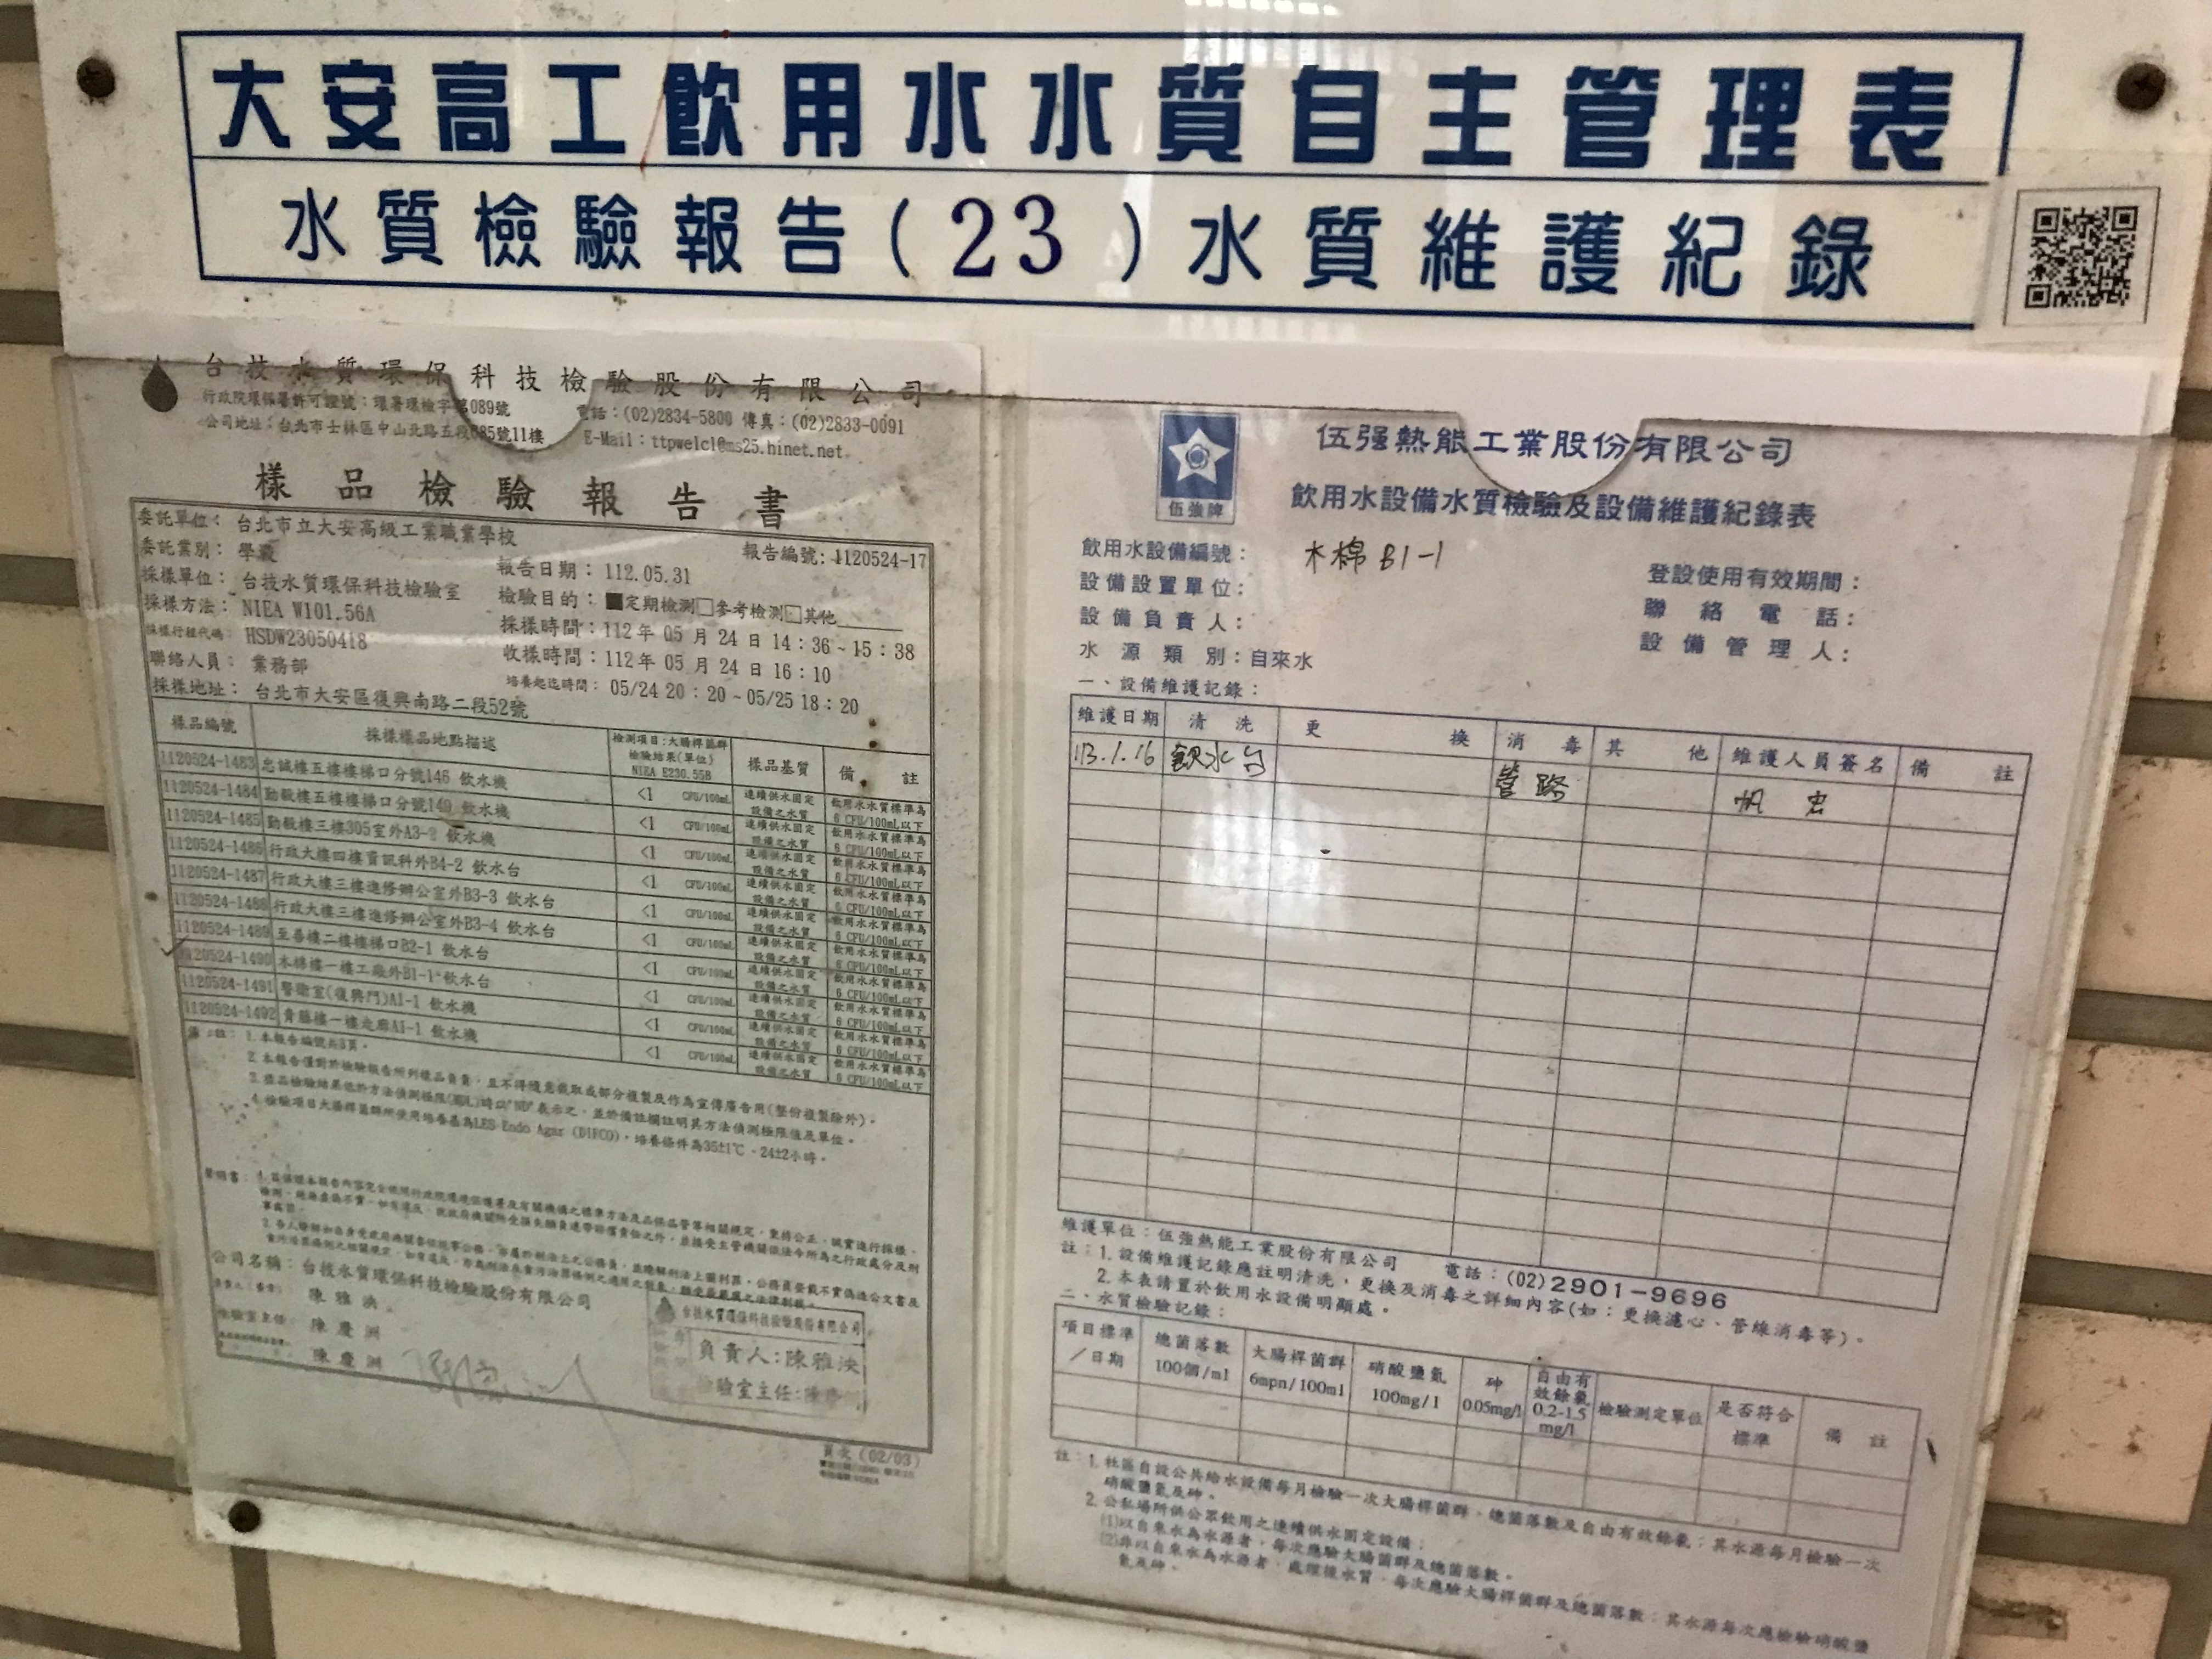 大安高工飲用水水質自主管理表
水質檢驗報告(23)水質維護紀錄
台技水質環保科技檢驗股份有限公司
行政院環保署許可證號：環署環檢字第089號
電話：(02)2834-5800 傳真：(02)2833-0091
公司地址：台北市士林區中山北路五段685號11樓
E-Mail：ttpwelcl@ms25.hinet.net
樣品檢驗報告書
委託單位：台北市立大安高級工業職業學校
報告編號：1120524-17
委託業別：學校
報告日期：112.05.31
採樣單位：台技水質環保科技檢驗室
檢驗目的：■定期檢測□參考檢測□其他
採樣方法：NIEA W101.56A
採樣時間：112年 05 月 24 日 14：36~15：38
採樣行程代碼：HSDW23050418
收樣時間：112年 05 月 24 日 16：10
聯絡人員：業務部
培養起迄時間：05/24 20：20~05/25 18：20
採樣地址：台北市大安區復興南路二段52號
樣品編號 採樣樣品地點描述 檢測項目:大腸桿菌群 檢驗結果(單位) NIEA E230.55B 樣品基質 備註
1120524-1483 忠誠樓五樓樓梯口分號146 飲水機 <1 CFU/100mL 連續供水固定設備之水質 飲用水水質標準為6 CFU/100mL以下
1120524-1484 勤毅樓五樓樓梯口分號149 飲水機 <1 CFU/100mL 連續供水固定設備之水質 飲用水水質標準為6 CFU/100mL以下
1120524-1485 勤毅樓三樓305室外A3-2 飲水機 <1 CFU/100mL 連續供水固定設備之水質 飲用水水質標準為6 CFU/100mL以下
1120524-1486 行政大樓四樓資訊科外B4-2 飲水台 <1 CFU/100mL 連續供水固定設備之水質 飲用水水質標準為6 CFU/100mL以下
1120524-1487 行政大樓三樓進修辦公室外B3-3 飲水台 <1 CFU/100mL 連續供水固定設備之水質 飲用水水質標準為6 CFU/100mL以下
1120524-1488 行政大樓三樓進修辦公室外B3-4 飲水台 <1 CFU/100mL 連續供水固定設備之水質 飲用水水質標準為6 CFU/100mL以下
1120524-1489 至善樓二樓樓梯口B2-1 飲水台 <1 CFU/100mL 連續供水固定設備之水質 飲用水水質標準為6 CFU/100mL以下
1120524-1490 木棉樓一樓工廠外B1-1 飲水台 <1 CFU/100mL 連續供水固定設備之水質 飲用水水質標準為6 CFU/100mL以下
1120524-1491 警衛室(復興門)A1-1 飲水機 <1 CFU/100mL 連續供水固定設備之水質 飲用水水質標準為6 CFU/100mL以下
1120524-1492 青藤樓一樓走廊A1-1 飲水機 <1 CFU/100mL 連續供水固定設備之水質 飲用水水質標準為6 CFU/100mL以下
備註：1.本報告編號共3頁。
2.本報告僅對於檢驗報告所列樣品負責，且不得隨意截取或部分複製及作為宣傳廣告用(整份複製除外)。
3.樣品檢驗結果低於方法偵測極限(MDL)時以"ND"表示之，並於備註欄註明其方法偵測極限值及單位。
4.檢驗項目大腸桿菌群所使用培養基為LES Endo Agar (DIFCO)，培養條件為35±1℃、24±2小時。
公司名稱：台技水質環保科技檢驗股份有限公司
陳雅泱
檢驗室主任：陳慶洲
陳慶洲
台技水質環保科技檢驗股份有限公司
負責人:陳雅泱
檢驗室主任:陳慶
頁次 (02/03)
伍強牌
伍强熱能工業股份有限公司
飲用水設備水質檢驗及設備維護紀錄表
飲用水設備編號：木棉 B1-1
登設使用有效期間：
設備設置單位：
聯絡電話：
設備負責人：
設備管理人：
水源類別：自來水
一、設備維護記錄：
維護日期 清洗 更換 消毒 其他 維護人員簽名 備註
113.1.16 飲水台 管路 帆宏
維護單位：伍強熱能工業股份有限公司 電話：(02)2901-9696
註：1. 設備維護記錄應註明清洗，更換及消毒之詳細內容(如：更換濾心、管線消毒等)。
2. 本表請置於飲用水設備明顯處。
二、水質檢驗記錄：
項目標準／日期 總菌落數 100個/ml 大腸桿菌群 6mpn/100ml 硝酸鹽氮 100mg/l 砷 0.05mg/l 自由有效餘氯 0.2-1.5 mg/l 檢驗測定單位 是否符合標準 備註
註：1. 社區自設公共給水設備每月檢驗一次大腸桿菌群、總菌落數及自由有效餘氯；其水源每月檢驗一次
硝酸鹽氮及砷。
2. 公私場所供公眾飲用之連續供水固定設備：
(1)以自來水為水源者，每次應驗大腸菌群及總菌落數。
(2)非以自來水為水源者，處理後水質，每次應驗大腸桿菌群及總菌落數；其水源每次應檢驗硝酸鹽
氮及砷。